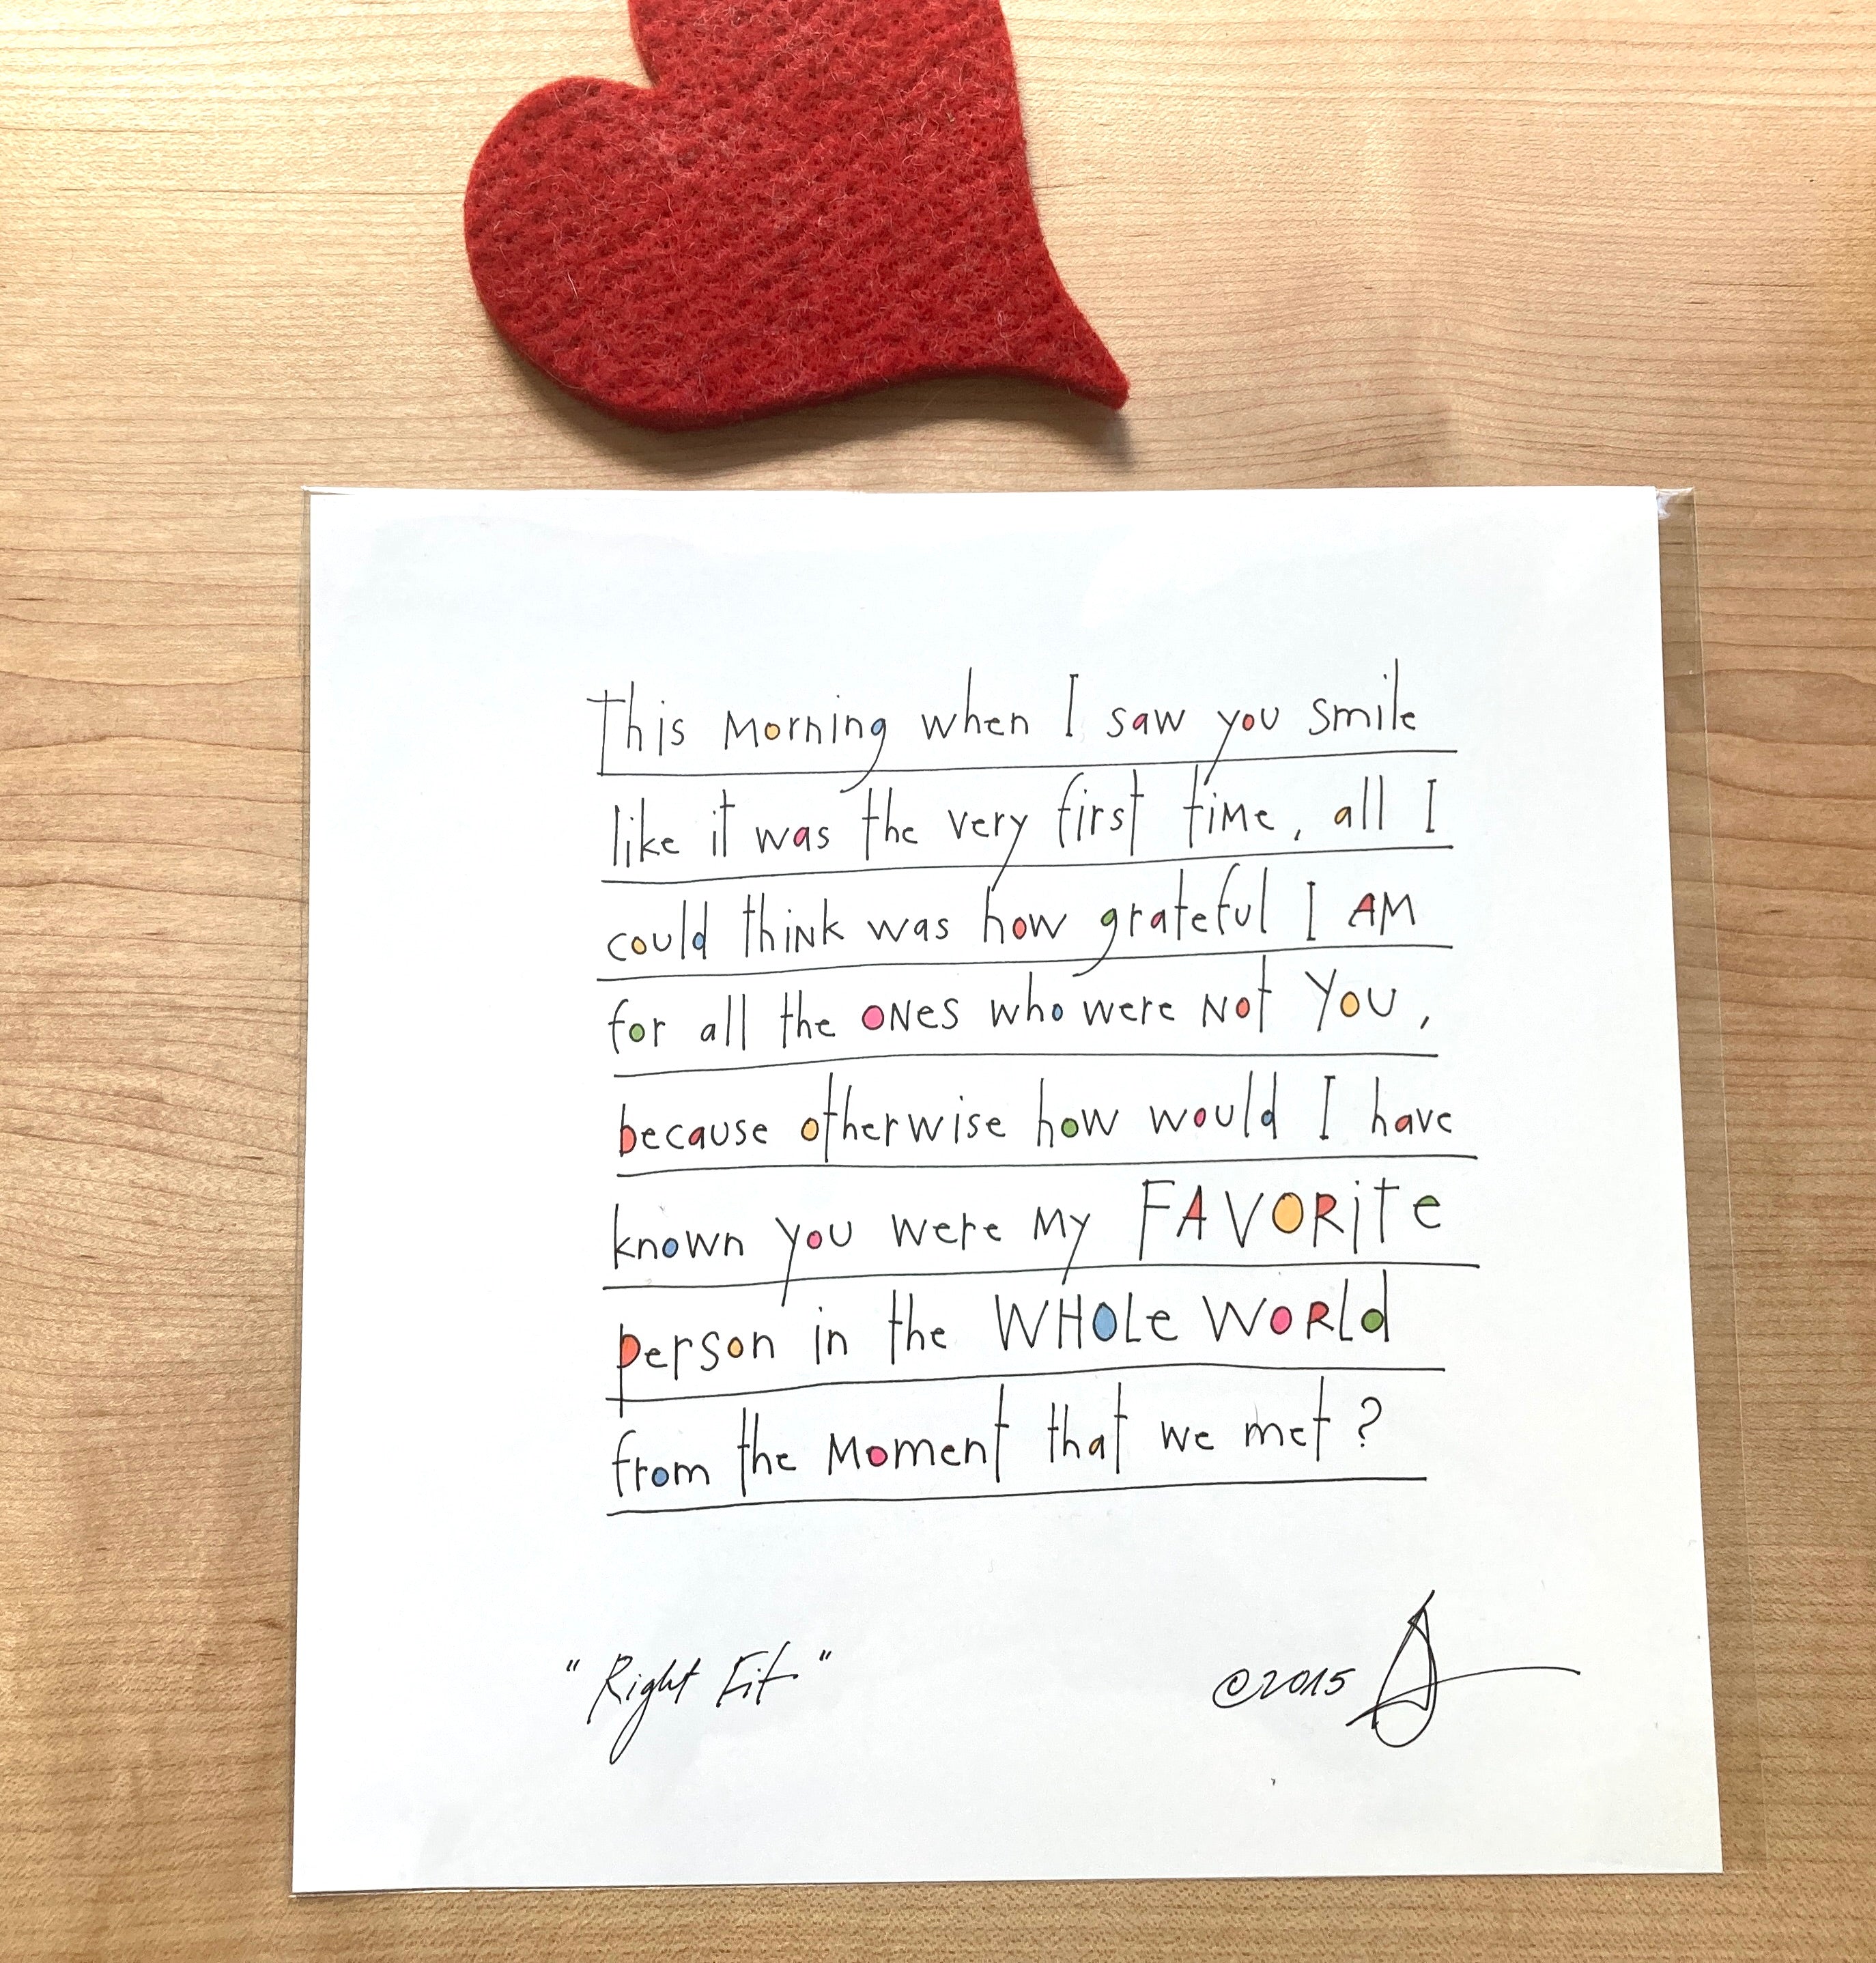 This Morning when I saw you smile
like it was the very first time, all I
could thiNK was how grateful I AM
for all the ONes who were Not You,
because otherwise how would I have
known you were My FAVORite
person in the WHOLe WORLd
from the Moment that we met?
"Right Fit"
©2015